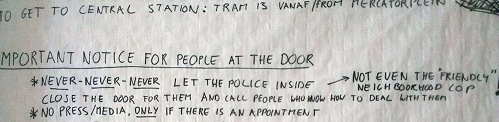 TO GET TO CENTRAL STATION: TRAM 13 VANAF/FROM MERCATORPLEIN
MPORTANT NOTICE FOR PEOPLE AT THE DOOR
* NEVER-NEVER-NEVER LET THE POLICE INSIDE → NOT EVEN THE "FRIENDLY"
NEIGHBOORHOOD COP!
CLOSE THE DOOR FOR THEM AND CALL PEOPLE WHO KNOW HOW TO DEAL WITH THEM
* NO PRESS/MEDIA, ONLY IF THERE IS AN APPOINTMENT